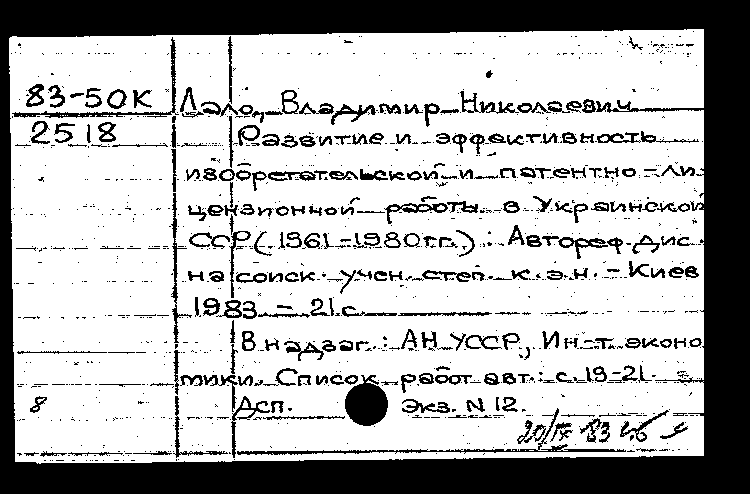 83-50К Лало, Владимир Николаевич
2518 Развитие и эффективность
изобретательской и патентно-ли-
цензионной работы в Украинской
ССР (1961-1980гг.): Автореф. дис.
на соиск. учен. степ. к.э.н. - Киев
1983 - 21 с.
В надзаг.: АН УССР, Ин-т эконо
мики. Список работ авт.: с. 19-21.
8 Дсп. Экз. N 12.
20/IX 83